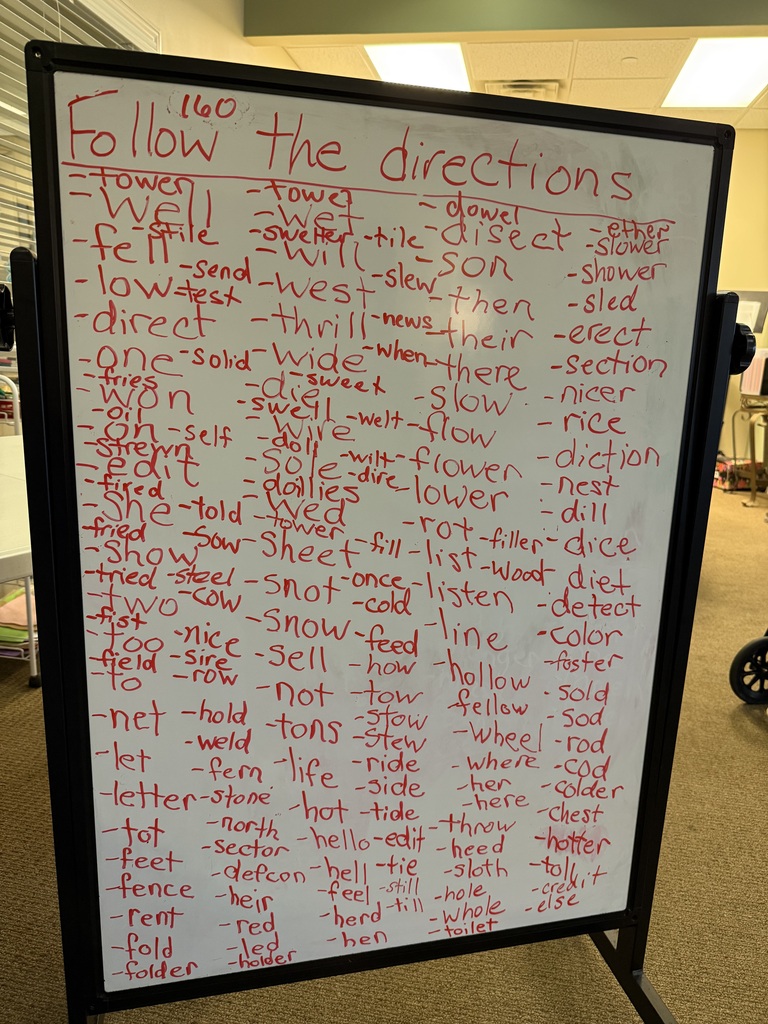 160
Follow the directions
- tower
- well
- stile
- fell
- send
- low
- test
- direct
- one
- solid
- fries
- won
- oil
- on
- self
- strewn
- edit
- fired
- she
- told
- fried
- sow
- show
- tried
- steel
- two
- cow
- fist
- too
- nice
- field
- sire
- to
- row
- net
- hold
- weld
- let
- fern
- letter
- stone
- north
- tot
- sector
- feet
- defcon
- fence
- heir
- rent
- red
- fold
- led
- folder
- holder
- towel
- wet
- swelter
- tile
- will
- slew
- west
- thrill
- news
- wide
- when
- sweet
- die
- swell
- welt
- wire
- doll
- wilt
- sole
- dire
- dollies
- wed
- tower
- sheet
- fill
- snot
- once
- cold
- snow
- feed
- sell
- how
- not
- tow
- stow
- tons
- stew
- life
- ride
- side
- hot
- tide
- hello
- edit
- hell
- tie
- feel
- still
- herd
- till
- hen
- dowel
- disect
- son
- then
- their
- there
- slow
- flow
- flower
- lower
- rot
- filler
- list
- woodt
- listen
- line
- hollow
- fellow
- wheel
- where
- her
- here
- throw
- heed
- sloth
- hole
- whole
- toilet
- ether
- slower
- shower
- sled
- erect
- section
- nicer
- rice
- diction
- nest
- dill
- dice
diet
- detect
- color
- foster
- sold
- sod
- rod
- cod
- colder
- chest
- hotter
- toll
- credit
- else